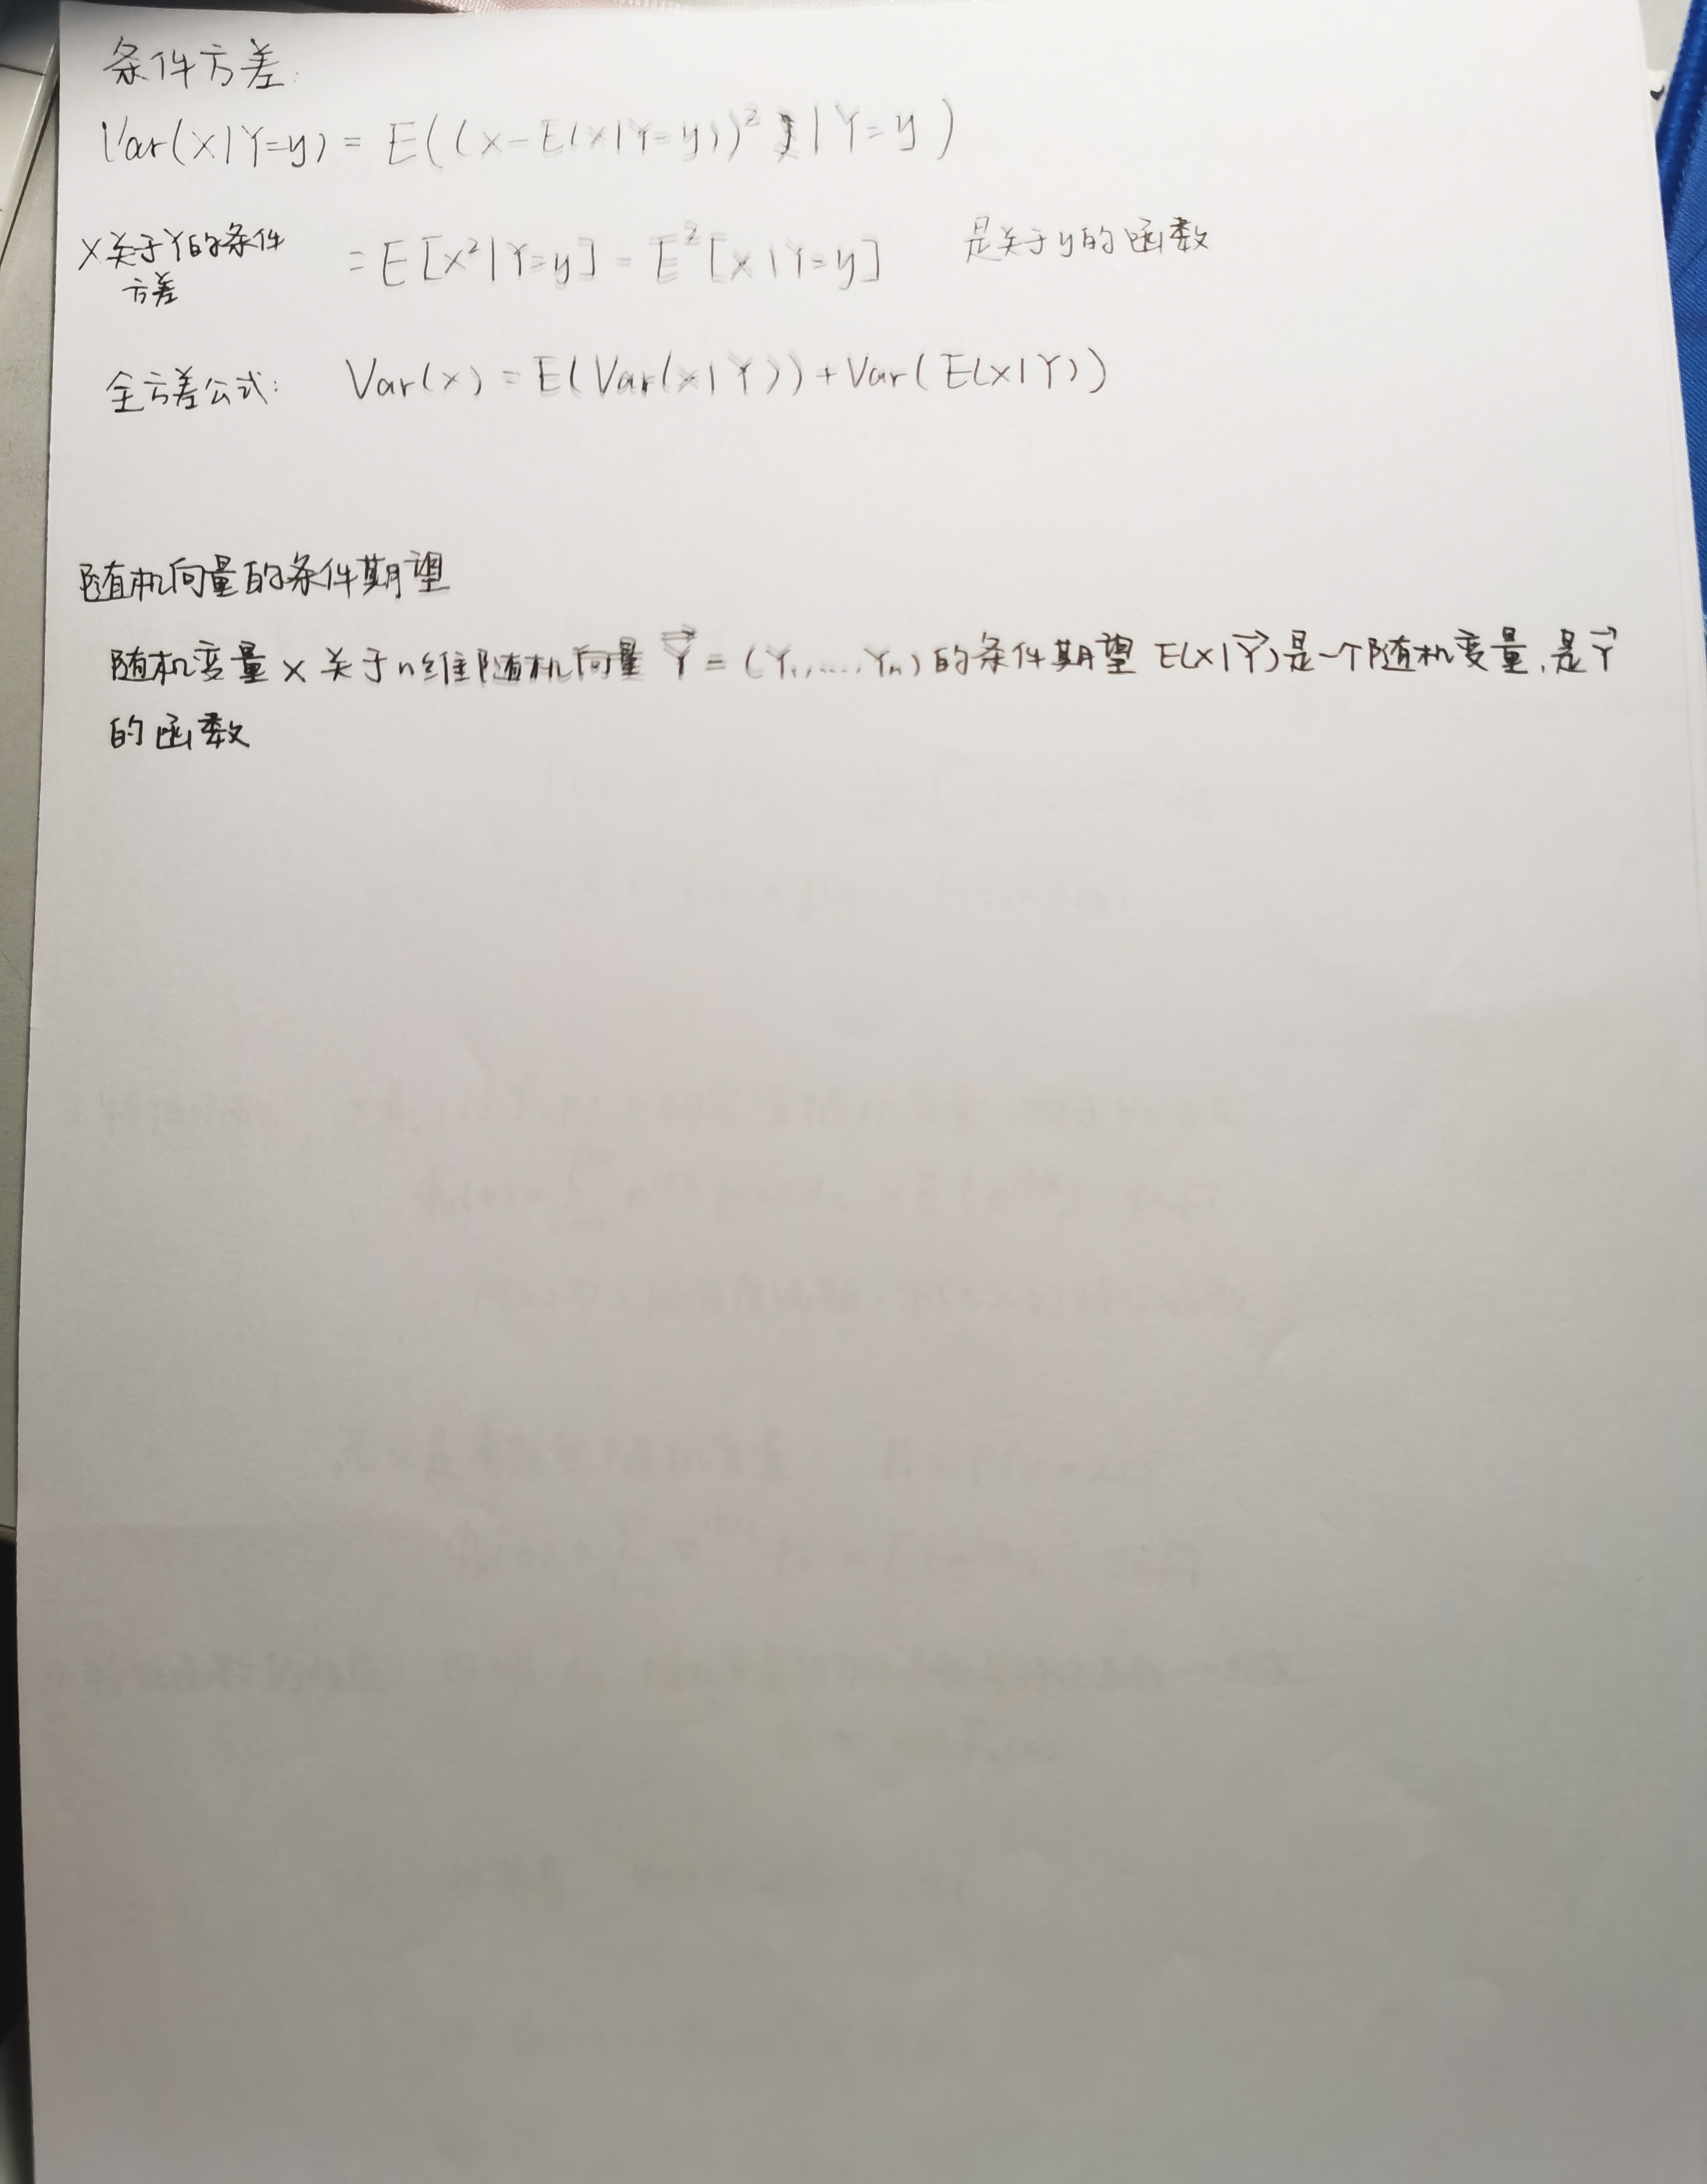 条件方差:
Var(X|Y=y) = E((X-E(X|Y=y))² | Y=y)
X关于Y的条件
方差
= E[X²|Y=y] - E²[X|Y=y]
是关于y的函数
全方差公式: Var(X) = E(Var(X|Y)) + Var(E(X|Y))
随机向量的条件期望
随机变量X关于n维随机向量 Y⃗ = (Y₁,...,Yₙ) 的条件期望 E(X|Y⃗) 是一个随机变量,是Y⃗
的函数